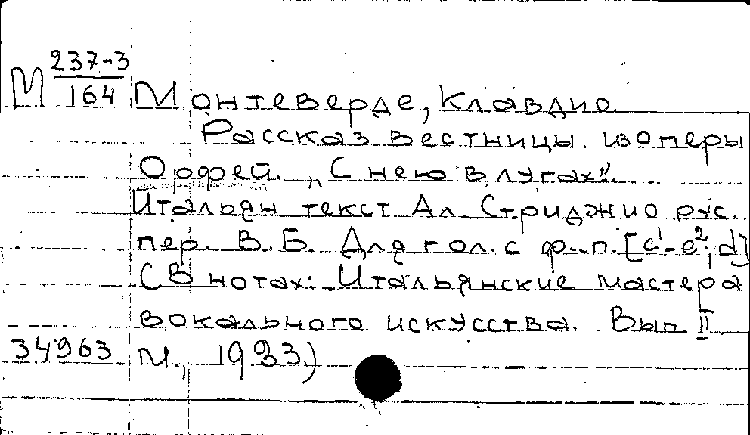 М 237-3
164 Монтеверде, Клавдио
Рассказ вестницы из оперы
Орфей. „С нею в лугах".
Итальян текст Ал. Стриджио рус.
пер. В. Б. Для гол. с ф.-п. [c¹-e²; d]
(В нотах: Итальянские мастера
вокального искусства. Вып II
34963 М., 1933)